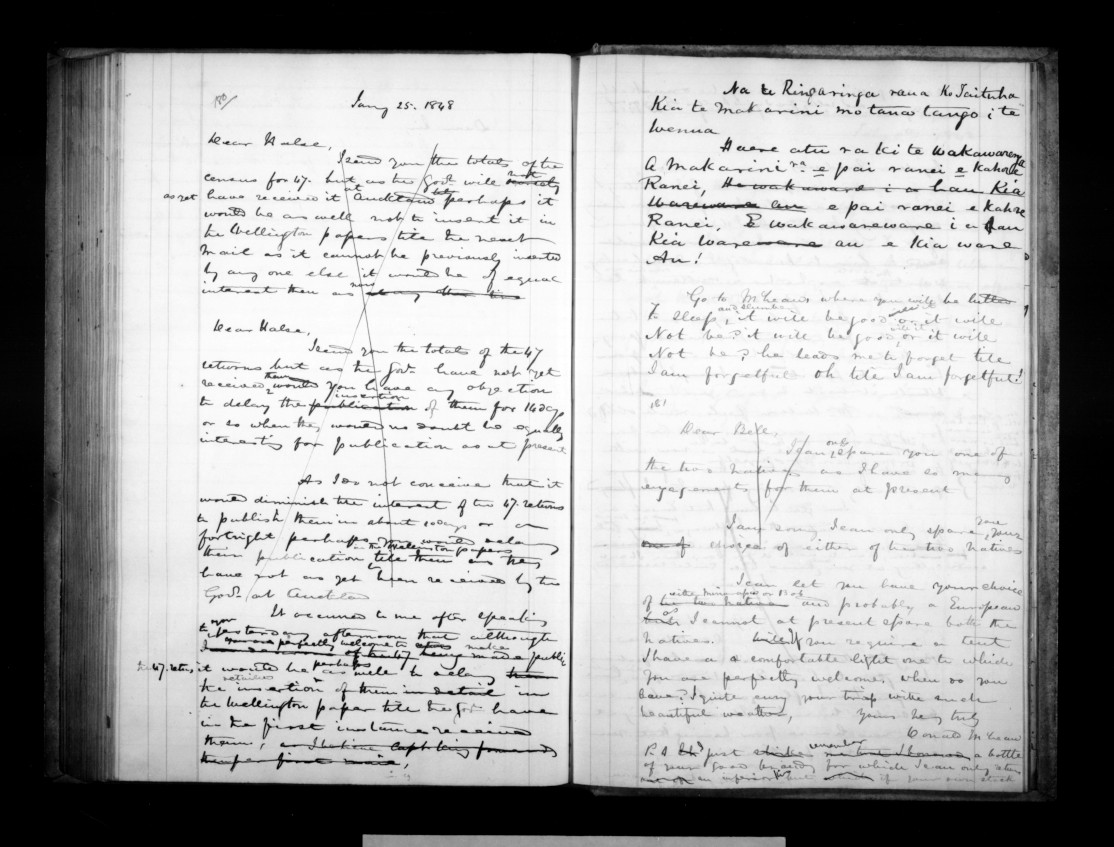 180
Jany 25. 1848
Dear Halse,
I send you the totals of the
census for 47. but as the Govt. will not
as yet have received it at Auckland perhaps it
would be as well not to insert it in
the Wellington papers till the next
Mail as it cannot be previously inserted
by any one else it would be of equal
interest then as now
Dear Halse,
I send you the totals of the 47
returns but as the Govt. have not yet
received them would you have any objection
to delay the publication insertion of them for 14 days
or so when they would no doubt be equally
interesting for publication as at present
As I do not conceive that it
would diminish the interest of the 47. returns
to publish them in about 10 days or a
fortnight perhaps you would delay
their publication in the Wellington papers till then as they
have not as yet been received by the
Govt. at Auckland
It occurred to me after speaking
to you yesterday afternoon that although
you are perfectly welcome to make
the 47. returns public
it would be perhaps as well to delay
the insertion of them in detail in
the Wellington paper till the Govt. have
in the first instance received
them,
Na te Ringaringa rana Ko Taituha
Kia te Makarini mo tana tango i te
Wenua
Haere atu ra ki te wakawarenga
A Makarini ra e pai ranei e Kahore
Ranei, He wakaware i a hau Kia
Wareware au e pai ranei e kahore
Ranei, E wakawareware i a hau
Kia Wareware au e Kia ware
Au!
Go to McLeans where you will be
To sleep, and slumber it will be good or it will
Not be? it will be good or will it
Not be? he leads me to forget till
I am forgetful oh till I am forgetful!
181
Dear Bell,
I can only spare you one of
the two natives as I have so many
engagements for them at present
I am sorry I can only spare you your
one of choice of either of the two natives
I can let you have your choice
of the two natives and probably a European
as I cannot at present spare both the
natives. If you require a tent
I have a comfortable light one to which
you are perfectly welcome, when do you
leave? I quite envy your trip with such
beautiful weather, Yours very truly
Donald McLean
P.S. just a bottle
of your good brandy for which I can only
an inferior but of your own stock